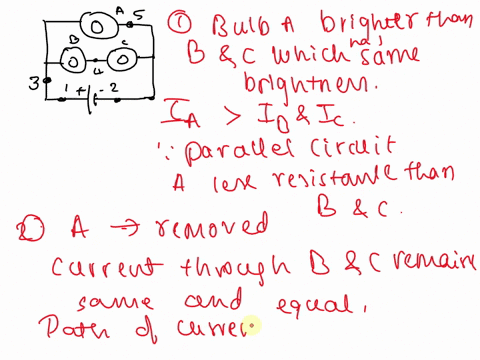 A 5
B C
4
3 1 + - 2
① Bulb A brighter than
B & C which has same
brightness.
I_A > I_B & I_C.
∵ parallel circuit
A less resistance than
B & C.
② A → removed
Current through B & C remains
same and equal.
Path of curre